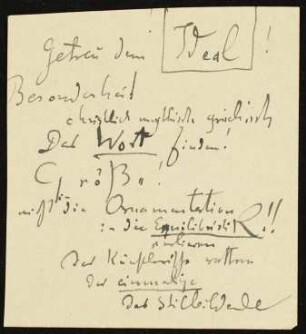 Getreu dem Ideal!
Besonderheit
christlich mythische griechisch
Das Wort finden!
Größe!
nicht die Ornamentation
in die Equilibristik
verlieren
Das Künstlerische
Das einmalige
Das Stilbildende